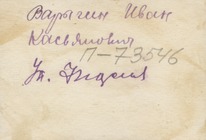 Варыгин Иван
Касьянович
П-73546
Ут.